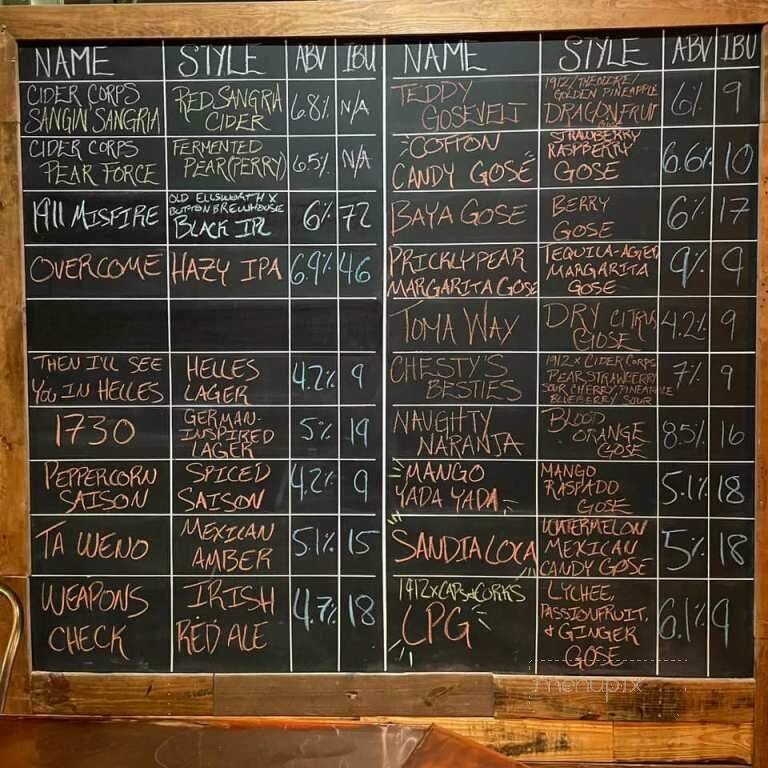 NAME STYLE ABV IBU
CIDER CORPS
SANGIN SANGRIA
RED SANGRIA
CIDER
6.8% N/A
CIDER CORPS
PEAR FORCE
FERMENTED
PEAR (PERRY)
6.5% N/A
1911 MISFIRE
OLD ELLSWORTH X
BUTTON BREWHOUSE
BLACK IPL
6% 72
OVERCOME HAZY IPA 6.9% 46
THEN I'LL SEE
YOU IN HELLES
HELLES
LAGER
4.2% 9
1730
GERMAN-
INSPIRED
LAGER
5% 19
PEPPERCORN
SAISON
SPICED
SAISON
4.2% 9
TA WENO
MEXICAN
AMBER
5.1% 15
WEAPONS
CHECK
IRISH
RED ALE
4.7% 18
NAME STYLE ABV IBU
TEDDY
GOSEVELT
1912/THEODORE/
GOLDEN PINEAPPLE
DRAGONFRUIT
6% 9
COTTON
CANDY GOSE
STRAWBERRY
RASPBERRY
GOSE
6.6% 10
BAYA GOSE
BERRY
GOSE
6% 17
PRICKLY PEAR
MARGARITA GOSE
TEQUILA-AGED
MARGARITA
GOSE
9% 9
TOMA WAY
DRY CITRUS
GOSE
4.2% 9
CHESTY'S
BESTIES
1912 X CIDER CORPS
PEAR STRAWBERRY
SOUR CHERRY PINEAPPLE
BLUEBERRY SOUR
7% 9
NAUGHTY
NARANJA
BLOOD
ORANGE
GOSE
8.5% 16
MANGO
YADA YADA
MANGO
RASPADO
GOSE
5.1% 18
SANDIA LOCA
WATERMELON
MEXICAN
CANDY GOSE
5% 18
1912 X CAPS & CORKS
LPG
LYCHEE,
PASSIONFRUIT,
& GINGER
GOSE
6.1% 9
menupix